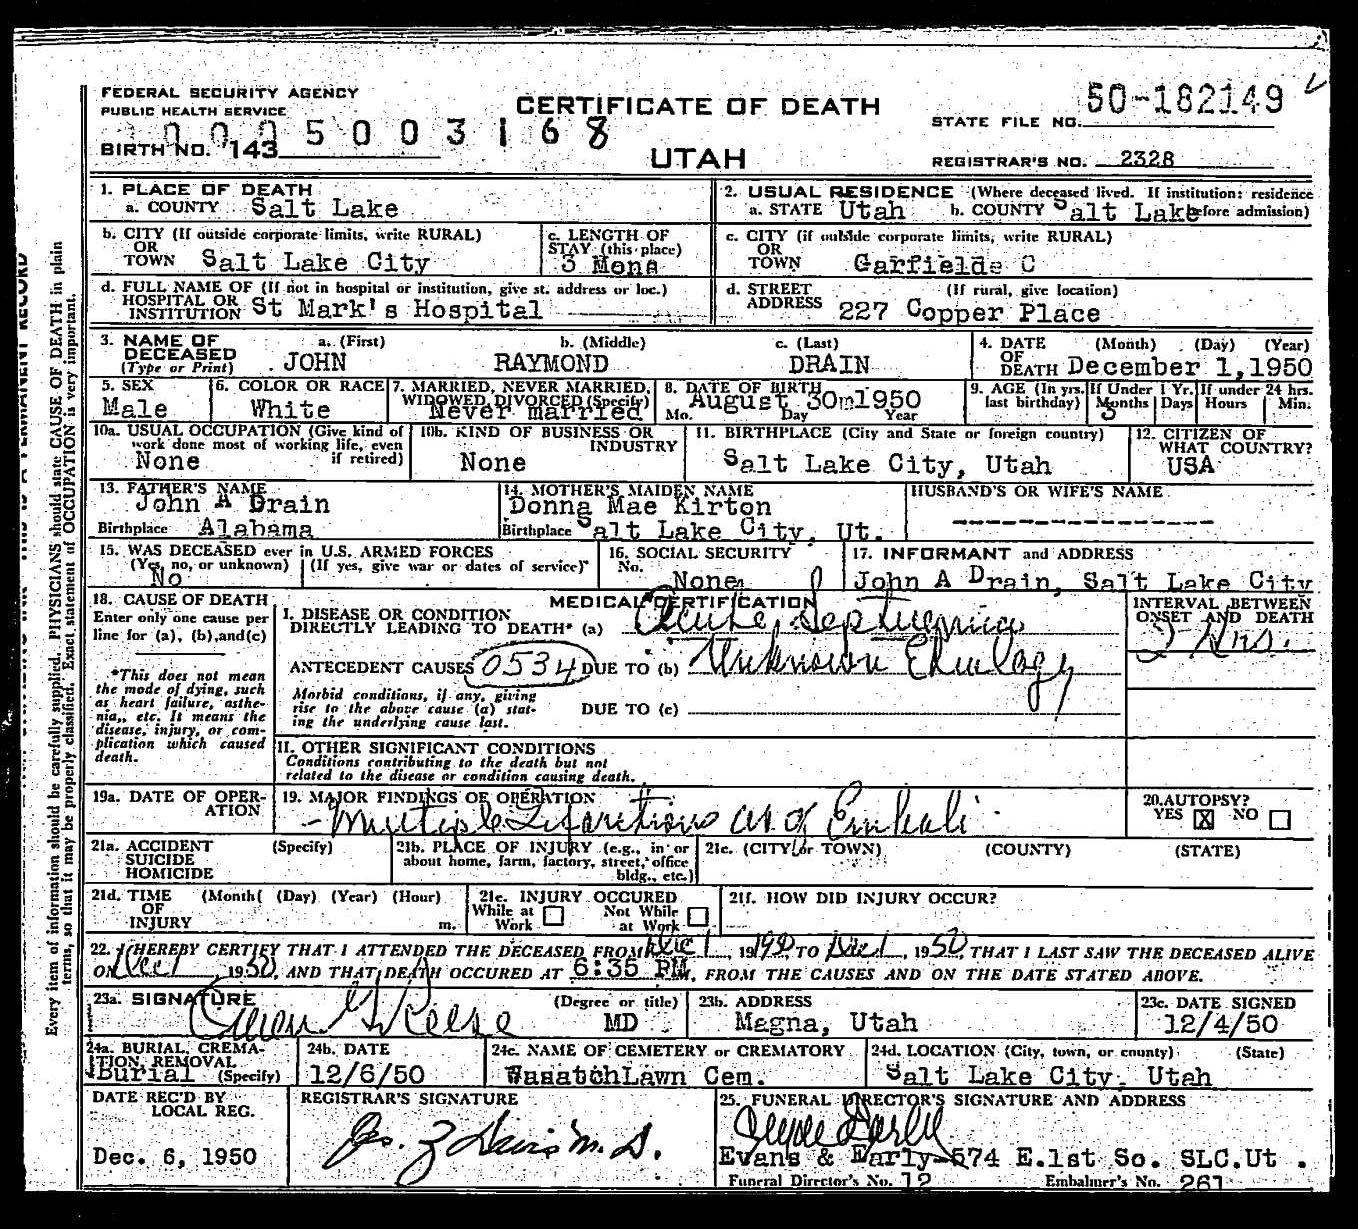 FEDERAL SECURITY AGENCY
PUBLIC HEALTH SERVICE
CERTIFICATE OF DEATH
UTAH
STATE FILE NO. 50-182149
BIRTH NO. 143 5 0 0 3 1 6 8
REGISTRAR'S NO. 2328
1. PLACE OF DEATH
a. COUNTY Salt Lake
2. USUAL RESIDENCE (Where deceased lived. If institution: residence before admission)
a. STATE Utah b. COUNTY Salt Lake
b. CITY (If outside corporate limits, write RURAL)
OR
TOWN Salt Lake City
c. LENGTH OF
STAY (this place)
3 Mons
c. CITY (if outside corporate limits, write RURAL)
OR
TOWN Garfield
d. FULL NAME OF (If not in hospital or institution, give st. address or loc.)
HOSPITAL OR
INSTITUTION St Mark's Hospital
d. STREET (If rural, give location)
ADDRESS 227 Copper Place
3. NAME OF
DECEASED
(Type or Print)
a. (First) b. (Middle) c. (Last)
JOHN RAYMOND DRAIN
4. DATE (Month) (Day) (Year)
OF
DEATH December 1,1950
5. SEX
Male
6. COLOR OR RACE
White
7. MARRIED, NEVER MARRIED,
WIDOWED, DIVORCED (Specify)
Never married
8. DATE OF BIRTH
August 30, 1950
Mo. Day Year
9. AGE (In yrs. last birthday)
If Under 1 Yr.
Months Days
3
If under 24 hrs.
Hours Min.
10a. USUAL OCCUPATION (Give kind of
work done most of working life, even
if retired)
None
10b. KIND OF BUSINESS OR
INDUSTRY
None
11. BIRTHPLACE (City and State or foreign country)
Salt Lake City, Utah
12. CITIZEN OF
WHAT COUNTRY?
USA
13. FATHER'S NAME
John A Drain
Birthplace Alabama
14. MOTHER'S MAIDEN NAME
Donna Mae Kirton
Birthplace Salt Lake City, Ut.
HUSBAND'S OR WIFE'S NAME
----------------
15. WAS DECEASED ever in U.S. ARMED FORCES
(Yes, no, or unknown) (If yes, give war or dates of service)
No
16. SOCIAL SECURITY
No.
None
17. INFORMANT and ADDRESS
John A Drain, Salt Lake City
18. CAUSE OF DEATH
Enter only one cause per
line for (a), (b), and (c)
*This does not mean
the mode of dying, such
as heart failure, asthe-
nia, etc. It means the
disease, injury, or com-
plication which caused
death.
MEDICAL CERTIFICATION
I. DISEASE OR CONDITION
DIRECTLY LEADING TO DEATH* (a) Acute Septicemia
ANTECEDENT CAUSES 0534 DUE TO (b) Unknown Etiology
Morbid conditions, if any, giving
rise to the above cause (a) stat-
ing the underlying cause last.
DUE TO (c)
INTERVAL BETWEEN
ONSET AND DEATH
2 Hrs.
II. OTHER SIGNIFICANT CONDITIONS
Conditions contributing to the death but not
related to the disease or condition causing death.
19a. DATE OF OPER-
ATION
19. MAJOR FINDINGS OF OPERATION
- Multiple Infarctions Emboli
20. AUTOPSY?
YES X NO
21a. ACCIDENT (Specify)
SUICIDE
HOMICIDE
21b. PLACE OF INJURY (e.g., in or
about home, farm, factory, street, office
bldg., etc.)
21c. (CITY or TOWN) (COUNTY) (STATE)
21d. TIME (Month( (Day) (Year) (Hour)
OF
INJURY m.
21e. INJURY OCCURED
While at Work Not While at Work
21f. HOW DID INJURY OCCUR?
22. I HEREBY CERTIFY THAT I ATTENDED THE DECEASED FROM Dec 1, 1950, TO Dec 1, 1950, THAT I LAST SAW THE DECEASED ALIVE
ON Dec 1, 1950, AND THAT DEATH OCCURED AT 6:35 PM, FROM THE CAUSES AND ON THE DATE STATED ABOVE.
23a. SIGNATURE (Degree or title)
Reese MD
23b. ADDRESS
Magna, Utah
23c. DATE SIGNED
12/4/50
24a. BURIAL, CREMA-
TION, REMOVAL
Burial (Specify)
24b. DATE
12/6/50
24c. NAME OF CEMETERY or CREMATORY
WasatchLawn Cem.
24d. LOCATION (City, town, or county) (State)
Salt Lake City, Utah
DATE REC'D BY
LOCAL REG.
Dec. 6, 1950
REGISTRAR'S SIGNATURE
25. FUNERAL DIRECTOR'S SIGNATURE AND ADDRESS
Evans & Early-574 E.1st So. SLC.Ut.
Funeral Director's No. 12 Embalmer's No. 261
Every item of information should be carefully supplied. PHYSICIANS should state CAUSE OF DEATH in plain
terms, so that it may be properly classified. Exact statement of OCCUPATION is very important.